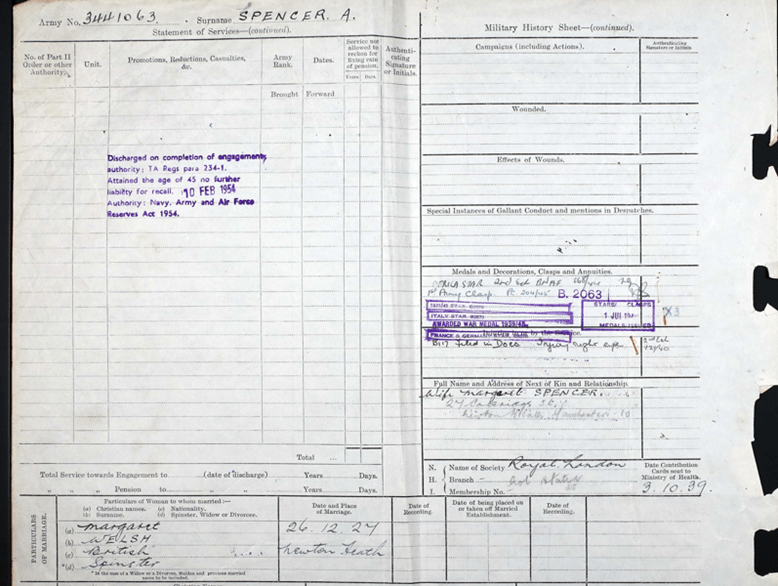 Army No. 3441063. Surname SPENCER. A.
Statement of Services—(continued).
No. of Part II Order or other Authority.
Unit.
Promotions, Reductions, Casualties, &c.
Army Rank.
Dates.
Service not allowed to reckon for fixing rate of pension.
Years Days.
Authenticating Signature or Initials.
Brought Forward
Discharged on completion of engagement,
authority: TA Regs para 234-1.
Attained the age of 45 no further
liability for recall. 10 FEB 1954
Authority: Navy, Army and Air Force
Reserves Act 1954.
Total ...
Total Service towards Engagement to (date of discharge) Years Days.
" " Pension to " Years Days.
PARTICULARS OF MARRIAGE.
Particulars of Woman to whom married:—
(a) Christian names. (c) Nationality.
(b) Surname. (d) Spinster, Widow or Divorcee.
Date and Place of Marriage.
Date of Recording.
(a) Margaret
(b) WELSH
(c) British
*(d) Spinster
26.12.27
Newton Heath
* In the case of a Widow or a Divorcee, Maiden and previous married name to be included.
Military History Sheet—(continued).
Campaigns (including Actions).
Authenticating Signature or Initials
Wounded.
Effects of Wounds.
Special Instances of Gallant Conduct and mentions in Despatches.
Medals and Decorations, Clasps and Annuities.
AFRICA STAR 2nd Ech BNAF
1st Army Clasp. Pt. 204/45 B. 2063
ITALY STAR
AWARDED WAR MEDAL 1939/45.
FRANCE & GERMANY
STARS/ CLASPS
1 JUN
MEDALS ISSUED
X3
B117 filed in Docs Injury right
Full Name and Address of Next of Kin and Relationship.
Wife Margaret SPENCER.
27
Newton Manchester 10
N. H. I.
Name of Society Royal London
Branch
Membership No.
Date Contribution Cards sent to Ministry of Health.
3.10.39.
Date of being placed on or taken off Married Establishment.
Date of Recording.